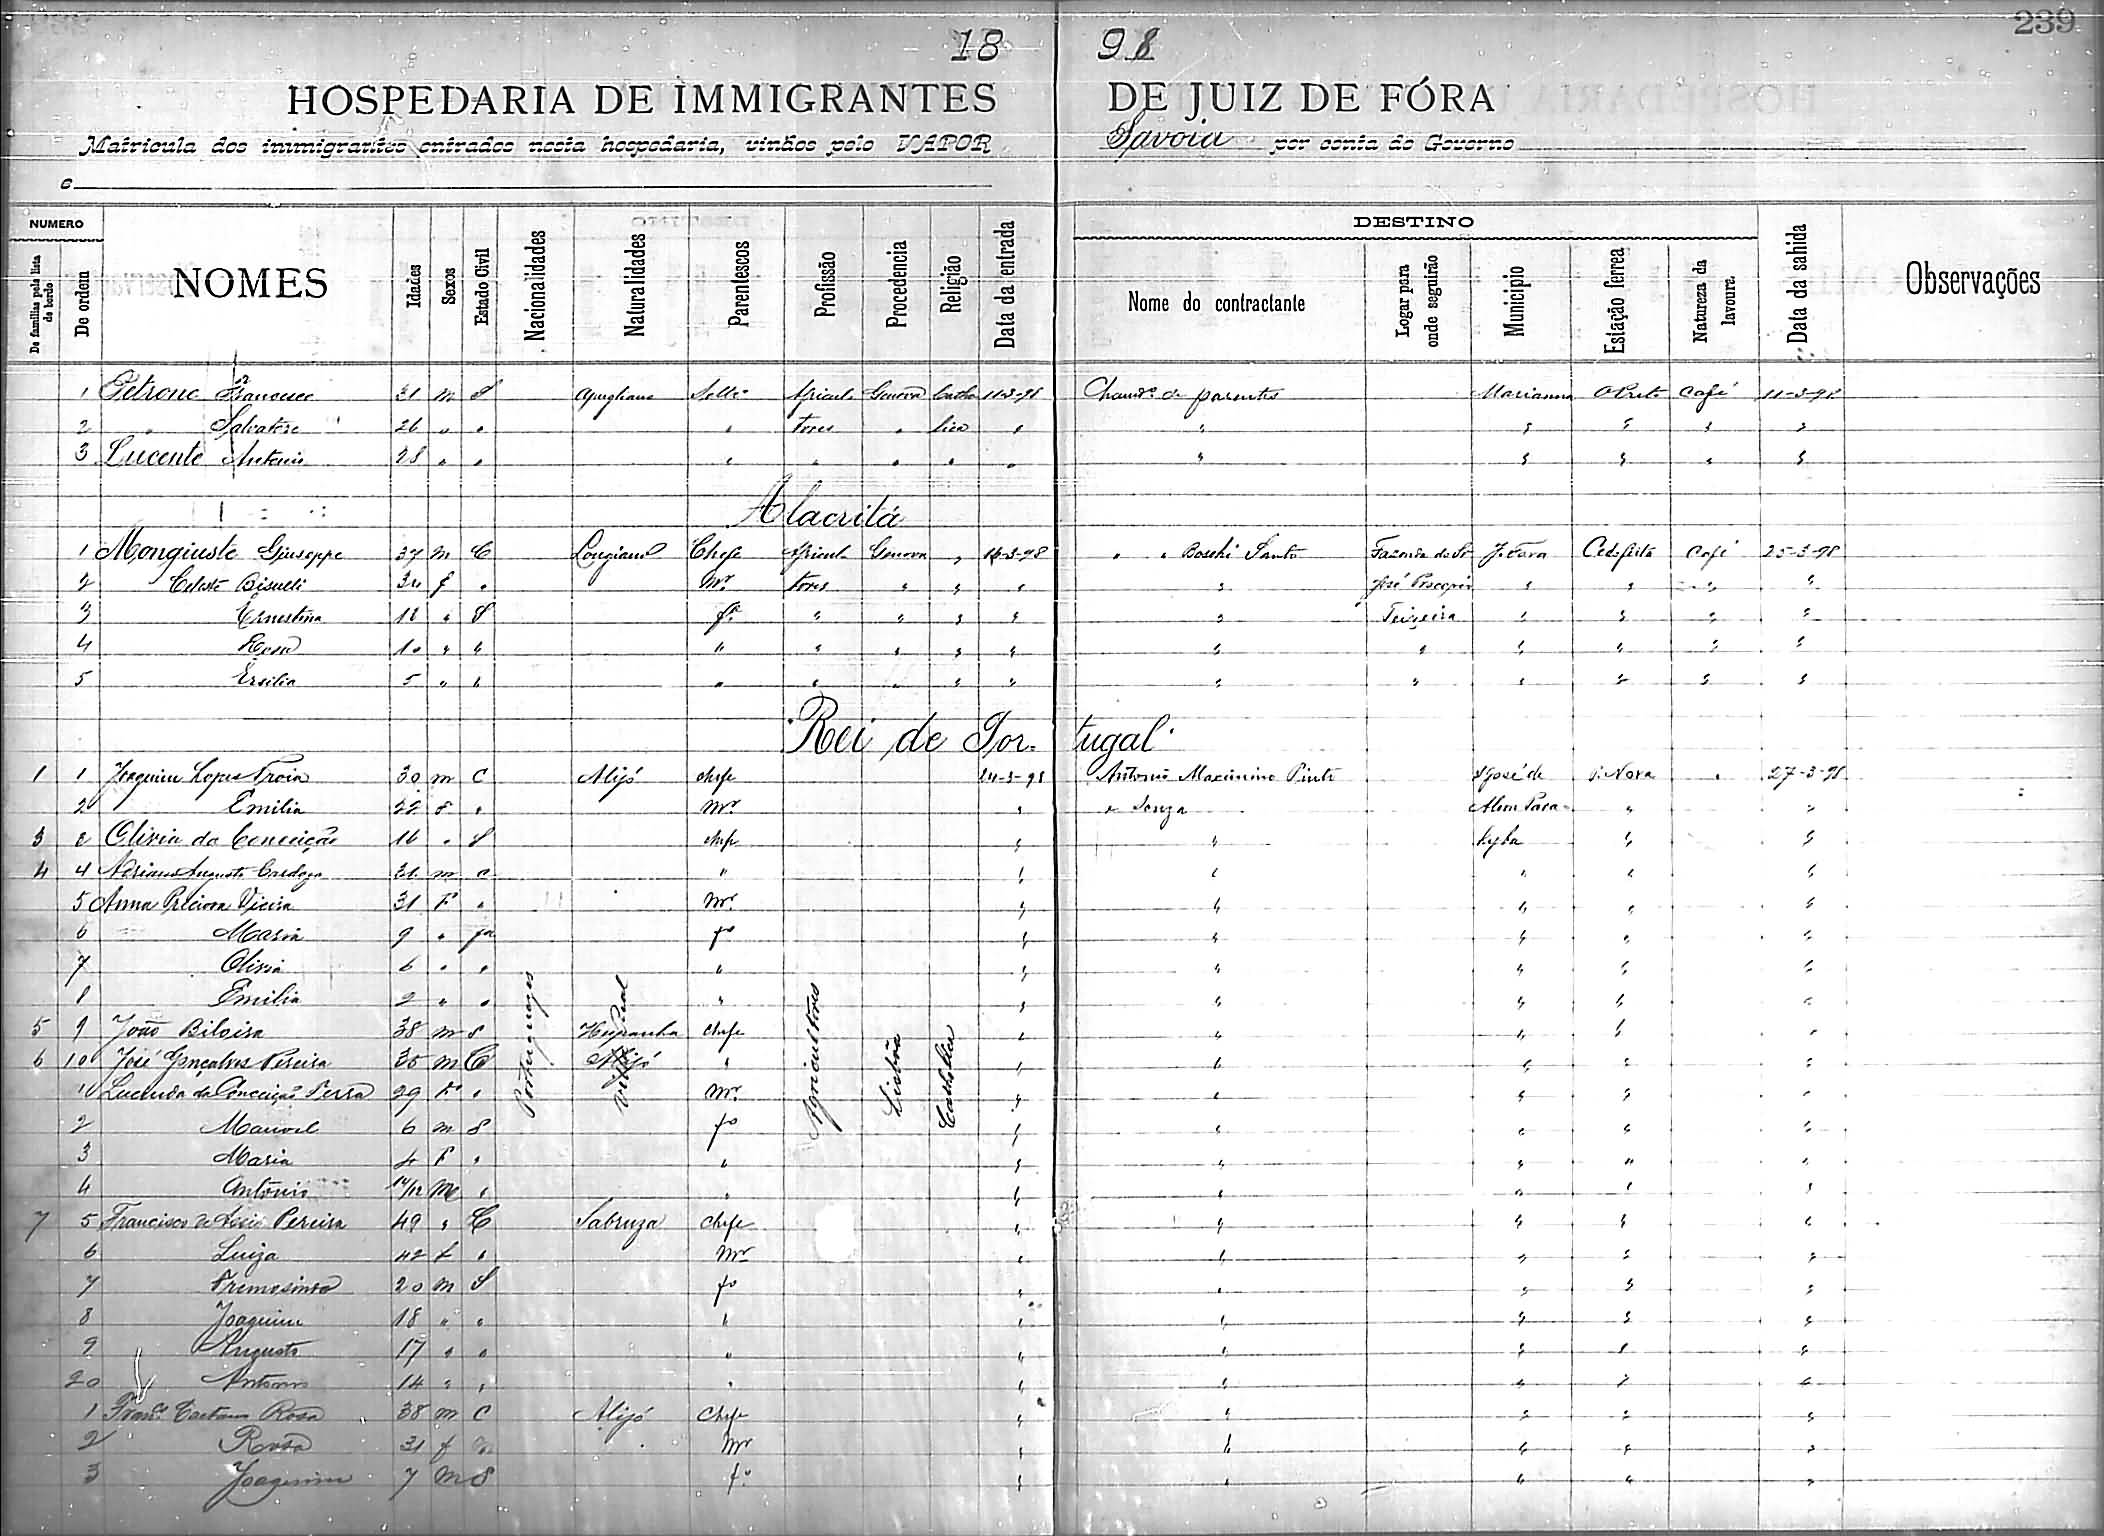 239
18 98
HOSPEDARIA DE IMMIGRANTES DE JUIZ DE FÓRA
Matricula dos inimigrantes entrados nesta hospedaria, vindos pelo VAPOR Savoia por conta do Governo
e
NUMERO
De familias pela lista de bordo
De ordem
NOMES
Idades
Sexos
Estado Civil
Nacionalidades
Naturalidades
Parentescos
Profissão
Procedencia
Religião
Data da entrada
DESTINO
Nome do contractante
Logar para onde seguirão
Municipio
Estação ferrea
Natureza da lavoura.
Data da sahida
Observações
1 Petrone Francesco 31 m S Solto Agricul Genova Catho 11-3-98 de parentes Marianna O Preto Café 11-3-98
2 " Salvatore 26 " " " tores " lico " " " " " "
3 Lucente Antonio 28 " " " " " " " " " " " "
Alacritá
1 Mongiusto Giuseppe 37 m C Longiano Chefe Agricul Genova " 16-3-98 " " Boschi Santo Fazenda do Sr J. Fora Café 25-3-98
2 Celeste f " Mr tores " " " " José Procopio " " " "
3 Ernestina 12 " S fª " " " " " Teixeira " " " "
4 Rosa 10 " " " " " " " " " " " " "
5 Ersilia 5 " " " " " " " " " " " " "
Rei de Portugal
1 1 Joaquim Lopes Troia 30 m C Alijó chefe 24-3-98 Antonio Maximino Pinto S José de P. Nova " 27-3-98
2 Emilia 22 F " Mr " " Souza Alem Para- " "
3 Olivia da Conceição 16 " S chefe " " hyba " "
4 4 Adriano Augusto Cardozo 31 m C " " " " " "
5 Anna Preciosa Vieira 31 F " Mr " " " " "
6 Maria 9 " fª " " " " "
7 Olivia 6 " " " " " " " "
8 Emilia 2 " " " " " " " "
5 9 João 38 m S Hespanha chefe " " " " "
6 10 José Gonçalves Pereira 35 m C Alijó " " " " " "
11 da Conceição 29 F " Mr " " " " "
2 Manoel 6 m S fº " " " " "
3 Maria 4 F " " " " " " "
4 Antonio m " " " " " " "
7 5 Francisco Pereira 49 " C Sabruza Chefe " " " " "
6 Luiza 42 f " Mr " " " " "
7 20 m S fº " " " " "
8 Joaquim 18 " " " " " " " "
9 Augusto 17 " " " " " " " "
20 Antonio 14 " " " " " " " "
1 Franco Caetano Rosa 38 m C Alijó Chefe " " " " "
2 Rosa 31 f Mr " " " " "
3 Joaquim 7 m S fº " " " " "
Portuguezes
Villa Real
Agricultores
Lisbôa
Catholica